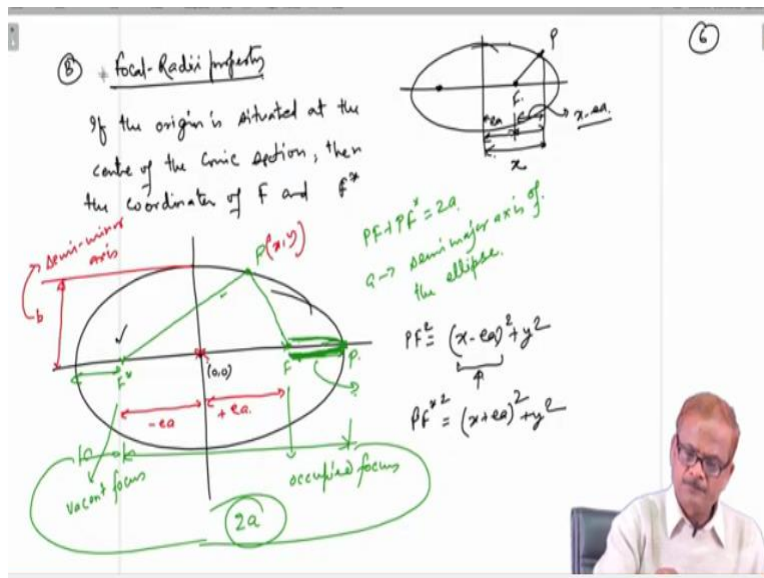 (B) Focal-Radii property
(6)
If the origin is situated at the
centre of the Conic Section, then
the coordinates of F and F*
P
F.
ea
x-ea.
x
Semi-minor
axis
b
P(x,y)
PF+PF* = 2a.
a → semi major axis of
the ellipse.
PF² = (x-ea)² + y²
PF*² = (x+ea)² + y²
F*
(0,0)
F
P.
-ea
+ea.
?
vacant focus
occupied focus
2a